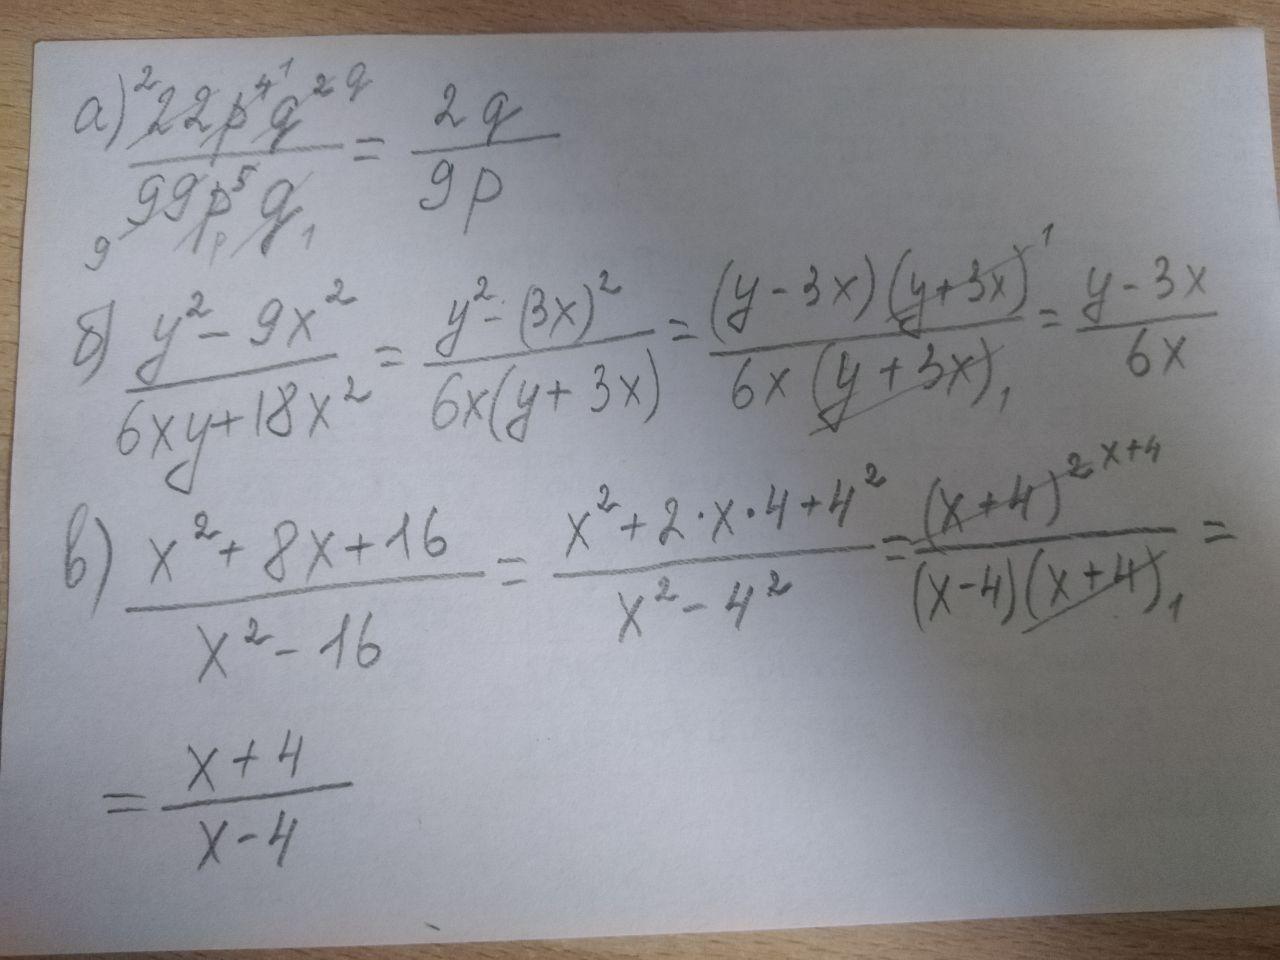 а) 22p⁴q²/99p⁵q = 2q/9p
б) y² - 9x²/6xy+18x² = y² - (3x)²/6x(y+3x) = (y-3x)(y+3x)/6x(y+3x) = y-3x/6x
в) x²+8x+16/x²-16 = x²+2·x·4+4²/x²-4² = (x+4)²/(x-4)(x+4) =
= x+4/x-4